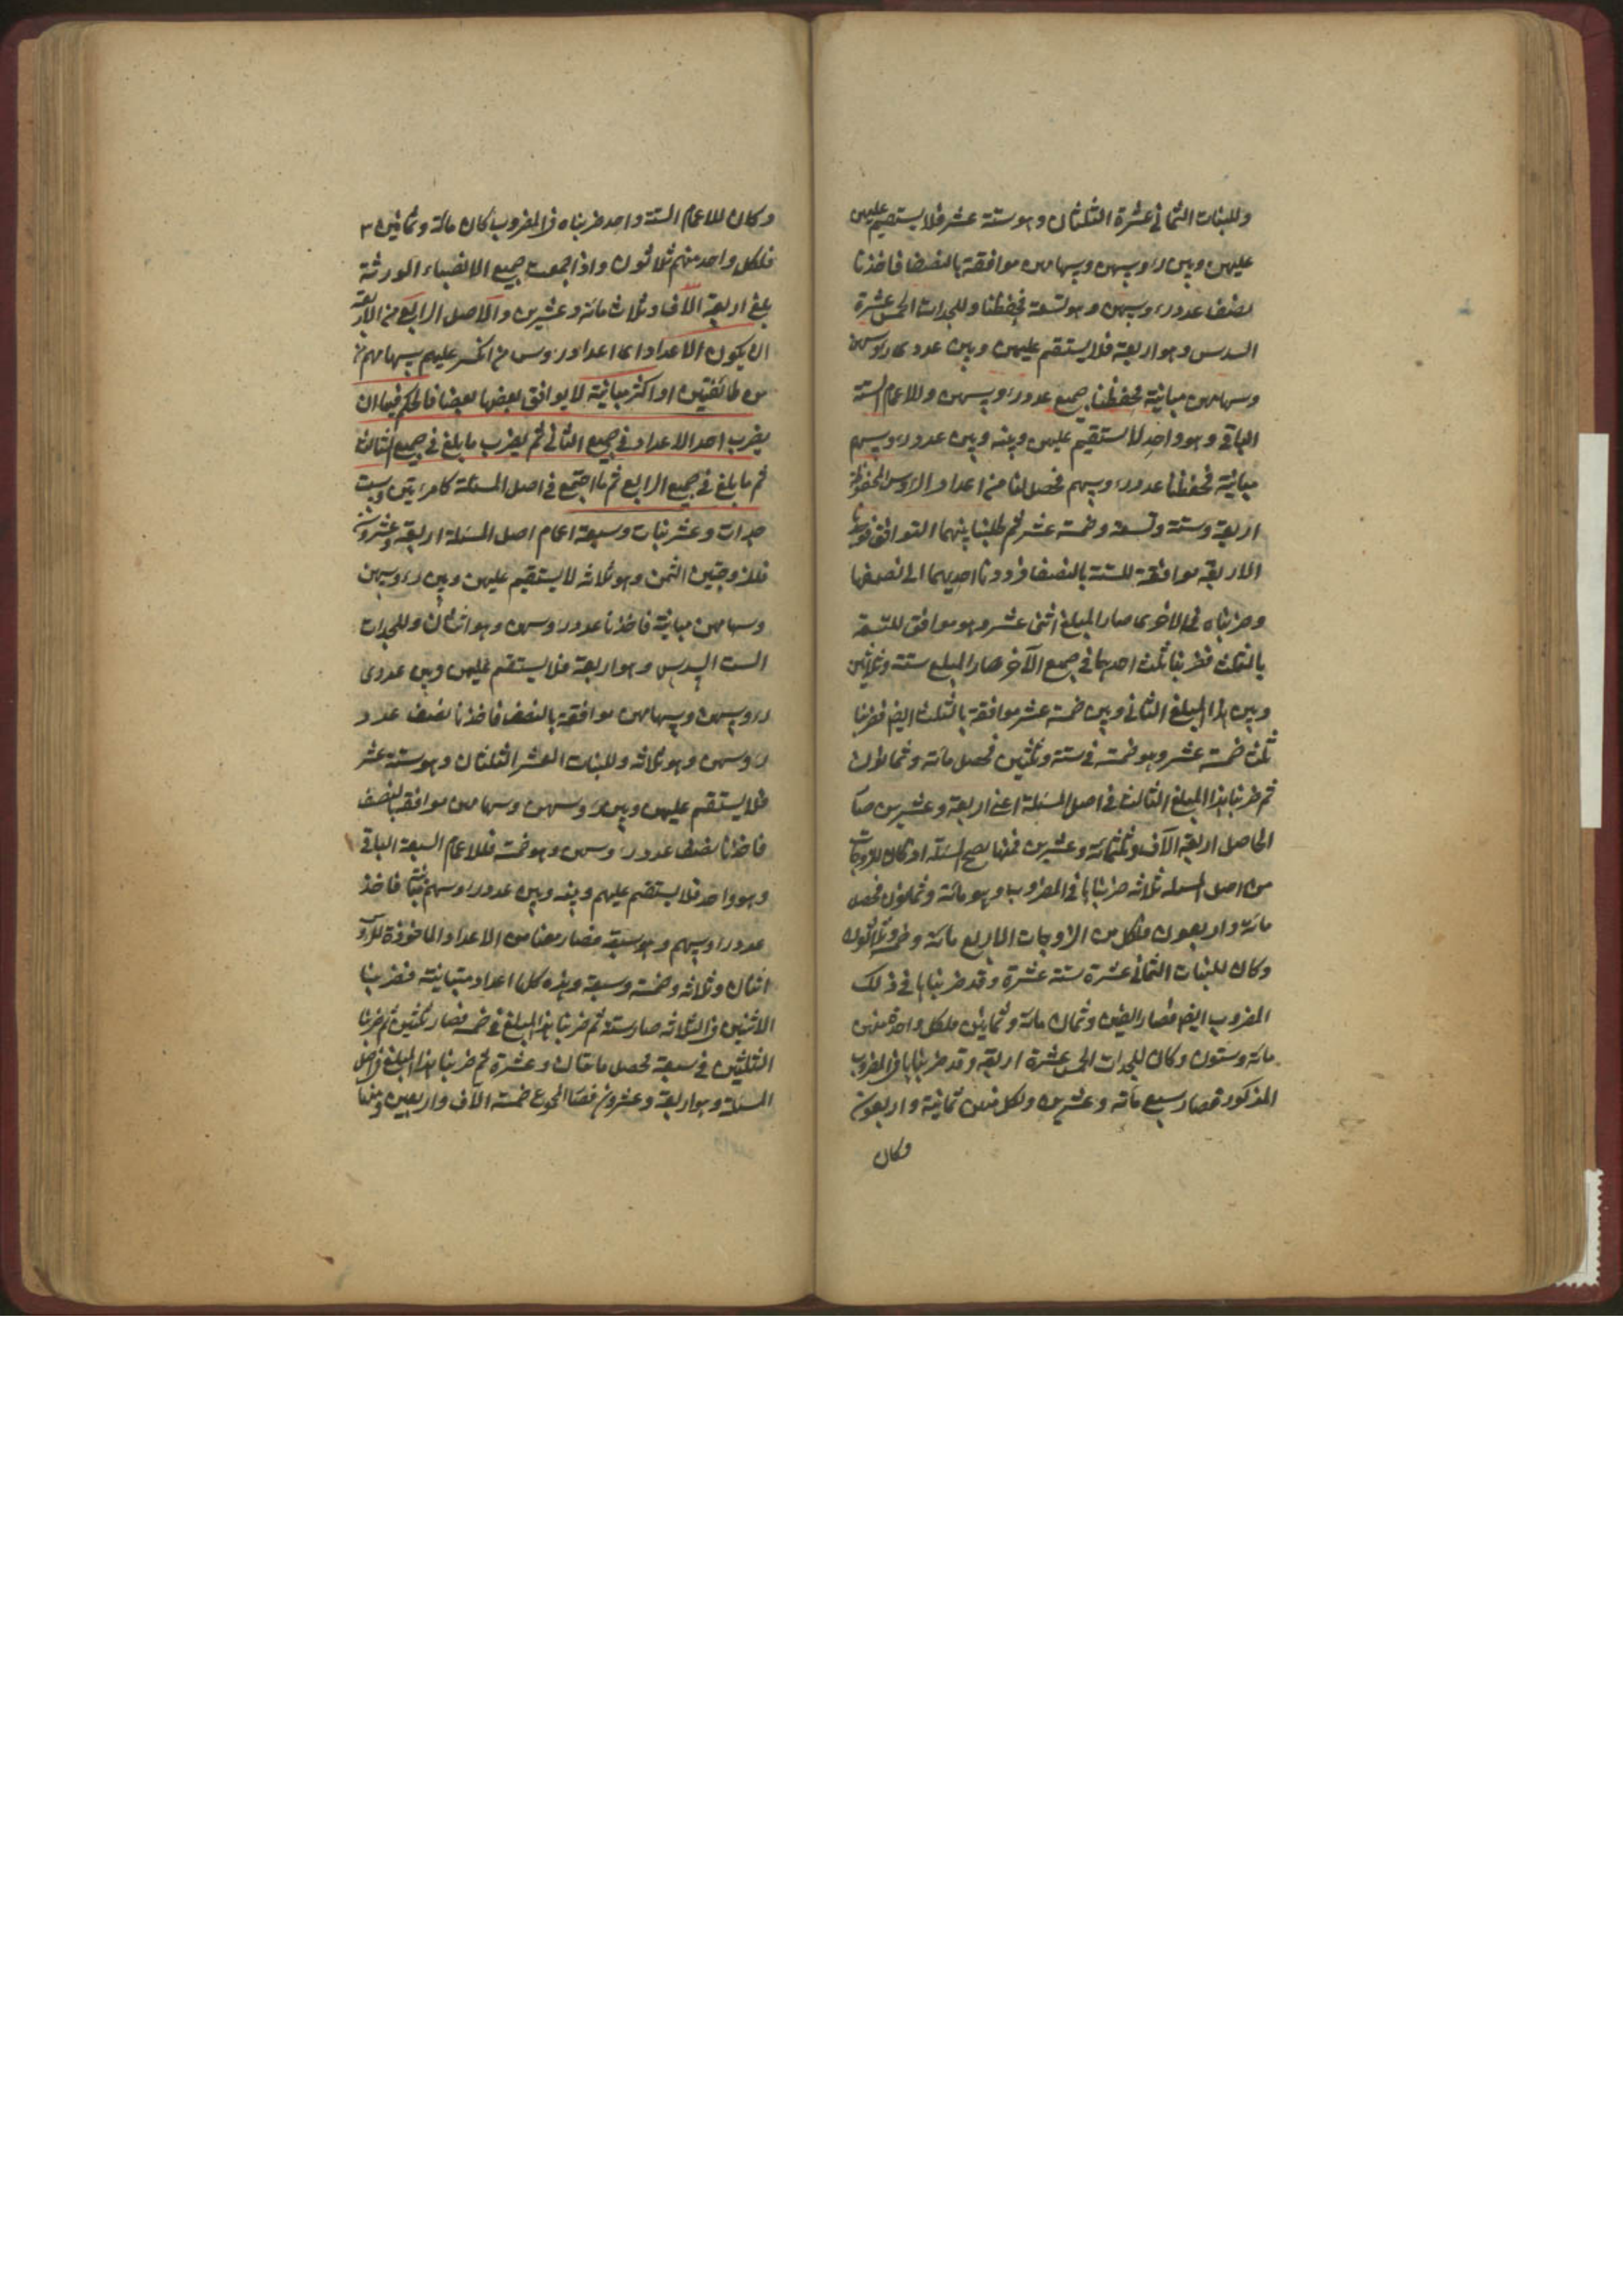 وللبنات الثمانى عشرة الثلثان وهو ستة عشر فلا يستقيم عليهن
عليهن وبين رؤسهن وسهامهن موافقة بالنصف فاخذنا
نصف عدد رؤسهن وهو تسعة فحفظنا وللجدات الخمس عشرة
السدس وهو اربعة فلا يستقيم عليهن وبين عدد رؤسهن
وسهامهن مباينة فحفظنا جميع عدد رؤسهن وللاعمام الستة
الباقى وهو واحد لا يستقيم عليهن وبينه وبين عدد رؤسهم
مباينة فحفظنا عدد رؤسهم فحصل لنا من اعداد الرؤس المحفوظة
اربعة وستة وتسعة وخمسة عشر ثم طلبنا بينهما التوافق فوجدنا
الاربعة موافقة للستة بالنصف فرددنا احديهما الى نصفها
وضربناه فى الاخرى صار المبلغ اثنى عشر وهو موافق للتسعة
بالثلث فضربنا ثلث احدهما فى جميع الآخر صار المبلغ ستة وثلاثين
وبين هذا المبلغ الثانى وبين خمسة عشر موافقة بالثلث ايضا فضربنا
ثلث خمسة عشر وهو خمسة فى ستة وثلثين فحصل مائة وثمانون
ثم ضربنا هذا المبلغ الثالث فى اصل المسئلة اعنى اربعة وعشرين صار
الحاصل اربعة الآف وثلثمائة وعشرين فمنها يصح المسئلة اذ كان للزوجات
من اصل المسئلة ثلاثة ضربناها فى المضروب وهو مائة وثمانون فحصل
مائة واربعون فلكل من الزوجات الاربع مائة وخمسة وثلاثون
وكان للبنات الثمانى عشرة ستة عشرة وقد ضربناها فى ذلك
المضروب ايضا فصار الفين وثمان مائة وثمانين فلكل واحدة منهن
مائة وستون وكان للجدات الخمس عشرة اربعة وقد ضربناها فى المضروب
المذكور فصار سبع مائة وعشرين ولكل منهن ثمانية واربعون
وكان
وكان للاعمام الستة واحد ضربناه فى المضروب كان مائة وثمانين
فلكل واحد منهم ثلاثون واذا جمعت جميع الانصباء الورثة
بلغ اربعة الآف وثلاث مائة وعشرين والاصل الرابع من الاربعة
ان يكون الاعداد اى اعداد رؤس من انكسر عليهم سهامهم
من طائفتين او اكثر مباينة لا يوافق بعضها بعضا فالحكم فيها ان
يضرب احد الاعداد فى جميع الثانى ثم يضرب ما بلغ فى جميع الثالث
ثم ما بلغ فى جميع الرابع ثم ما اجتمع فى اصل المسئلة كامرءتين وست
جدات وعشر بنات وسبعة اعمام اصل المسئلة اربعة وعشرون
فللزوجتين الثمن وهو ثلاثة لا يستقيم عليهن وبين رؤسهن
وسهامهن مباينة فاخذنا عدد رؤسهن وهو اثنان وللجدات
الست السدس وهو اربعة فلا يستقيم عليهن وبين عددى
رؤسهن وسهامهن موافقة بالنصف فاخذنا نصف عدد
رؤسهن وهو ثلاثة وللبنات العشر الثلثان وهو ستة عشر
فلا يستقيم عليهن وبين رؤسهن وسهامهن موافقة بالنصف
فاخذنا نصف عدد رؤسهن وهو خمسة فللاعمام السبعة الباقى
وهو واحد فلا يستقيم عليهم وبينه وبين عدد رؤسهم تباين فاخذ
عدد رؤسهم وهو سبعة فصار معنا من الاعداد الماخوذة للرؤس
اثنان وثلاثة وخمسة وسبعة وهذه كلها اعداد متباينة فضربنا
الاثنين فى الثلاثة صار ستة ثم ضربنا هذا المبلغ فى خمسة فصار ثلثين ثم ضربنا
الثلثين فى سبعة فحصل مائتان وعشرة ثم ضربنا هذا المبلغ فى اصل
المسئلة وهو اربعة وعشرون فصار المجموع خمسة الآف واربعين ومنها